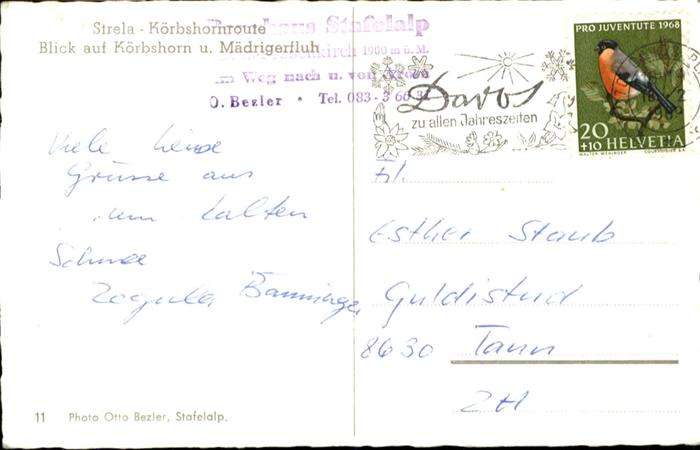 Strela - Körbshornroute
Blick auf Körbshorn u. Mädrigerfluh
Berghaus Stafelalp
1900 m ü. M.
am Weg nach u. von Arosa
O. Bezler • Tel. 083 - 3 66 31
Davos
zu allen Jahreszeiten
PRO JUVENTUTE 1968
20
+10 HELVETIA
Viele liebe
Grüsse aus
dem kalten
Schnee
Frl.
Esther Staub
Guldistud
8630 Tann
ZH
11 Photo Otto Bezler, Stafelalp.